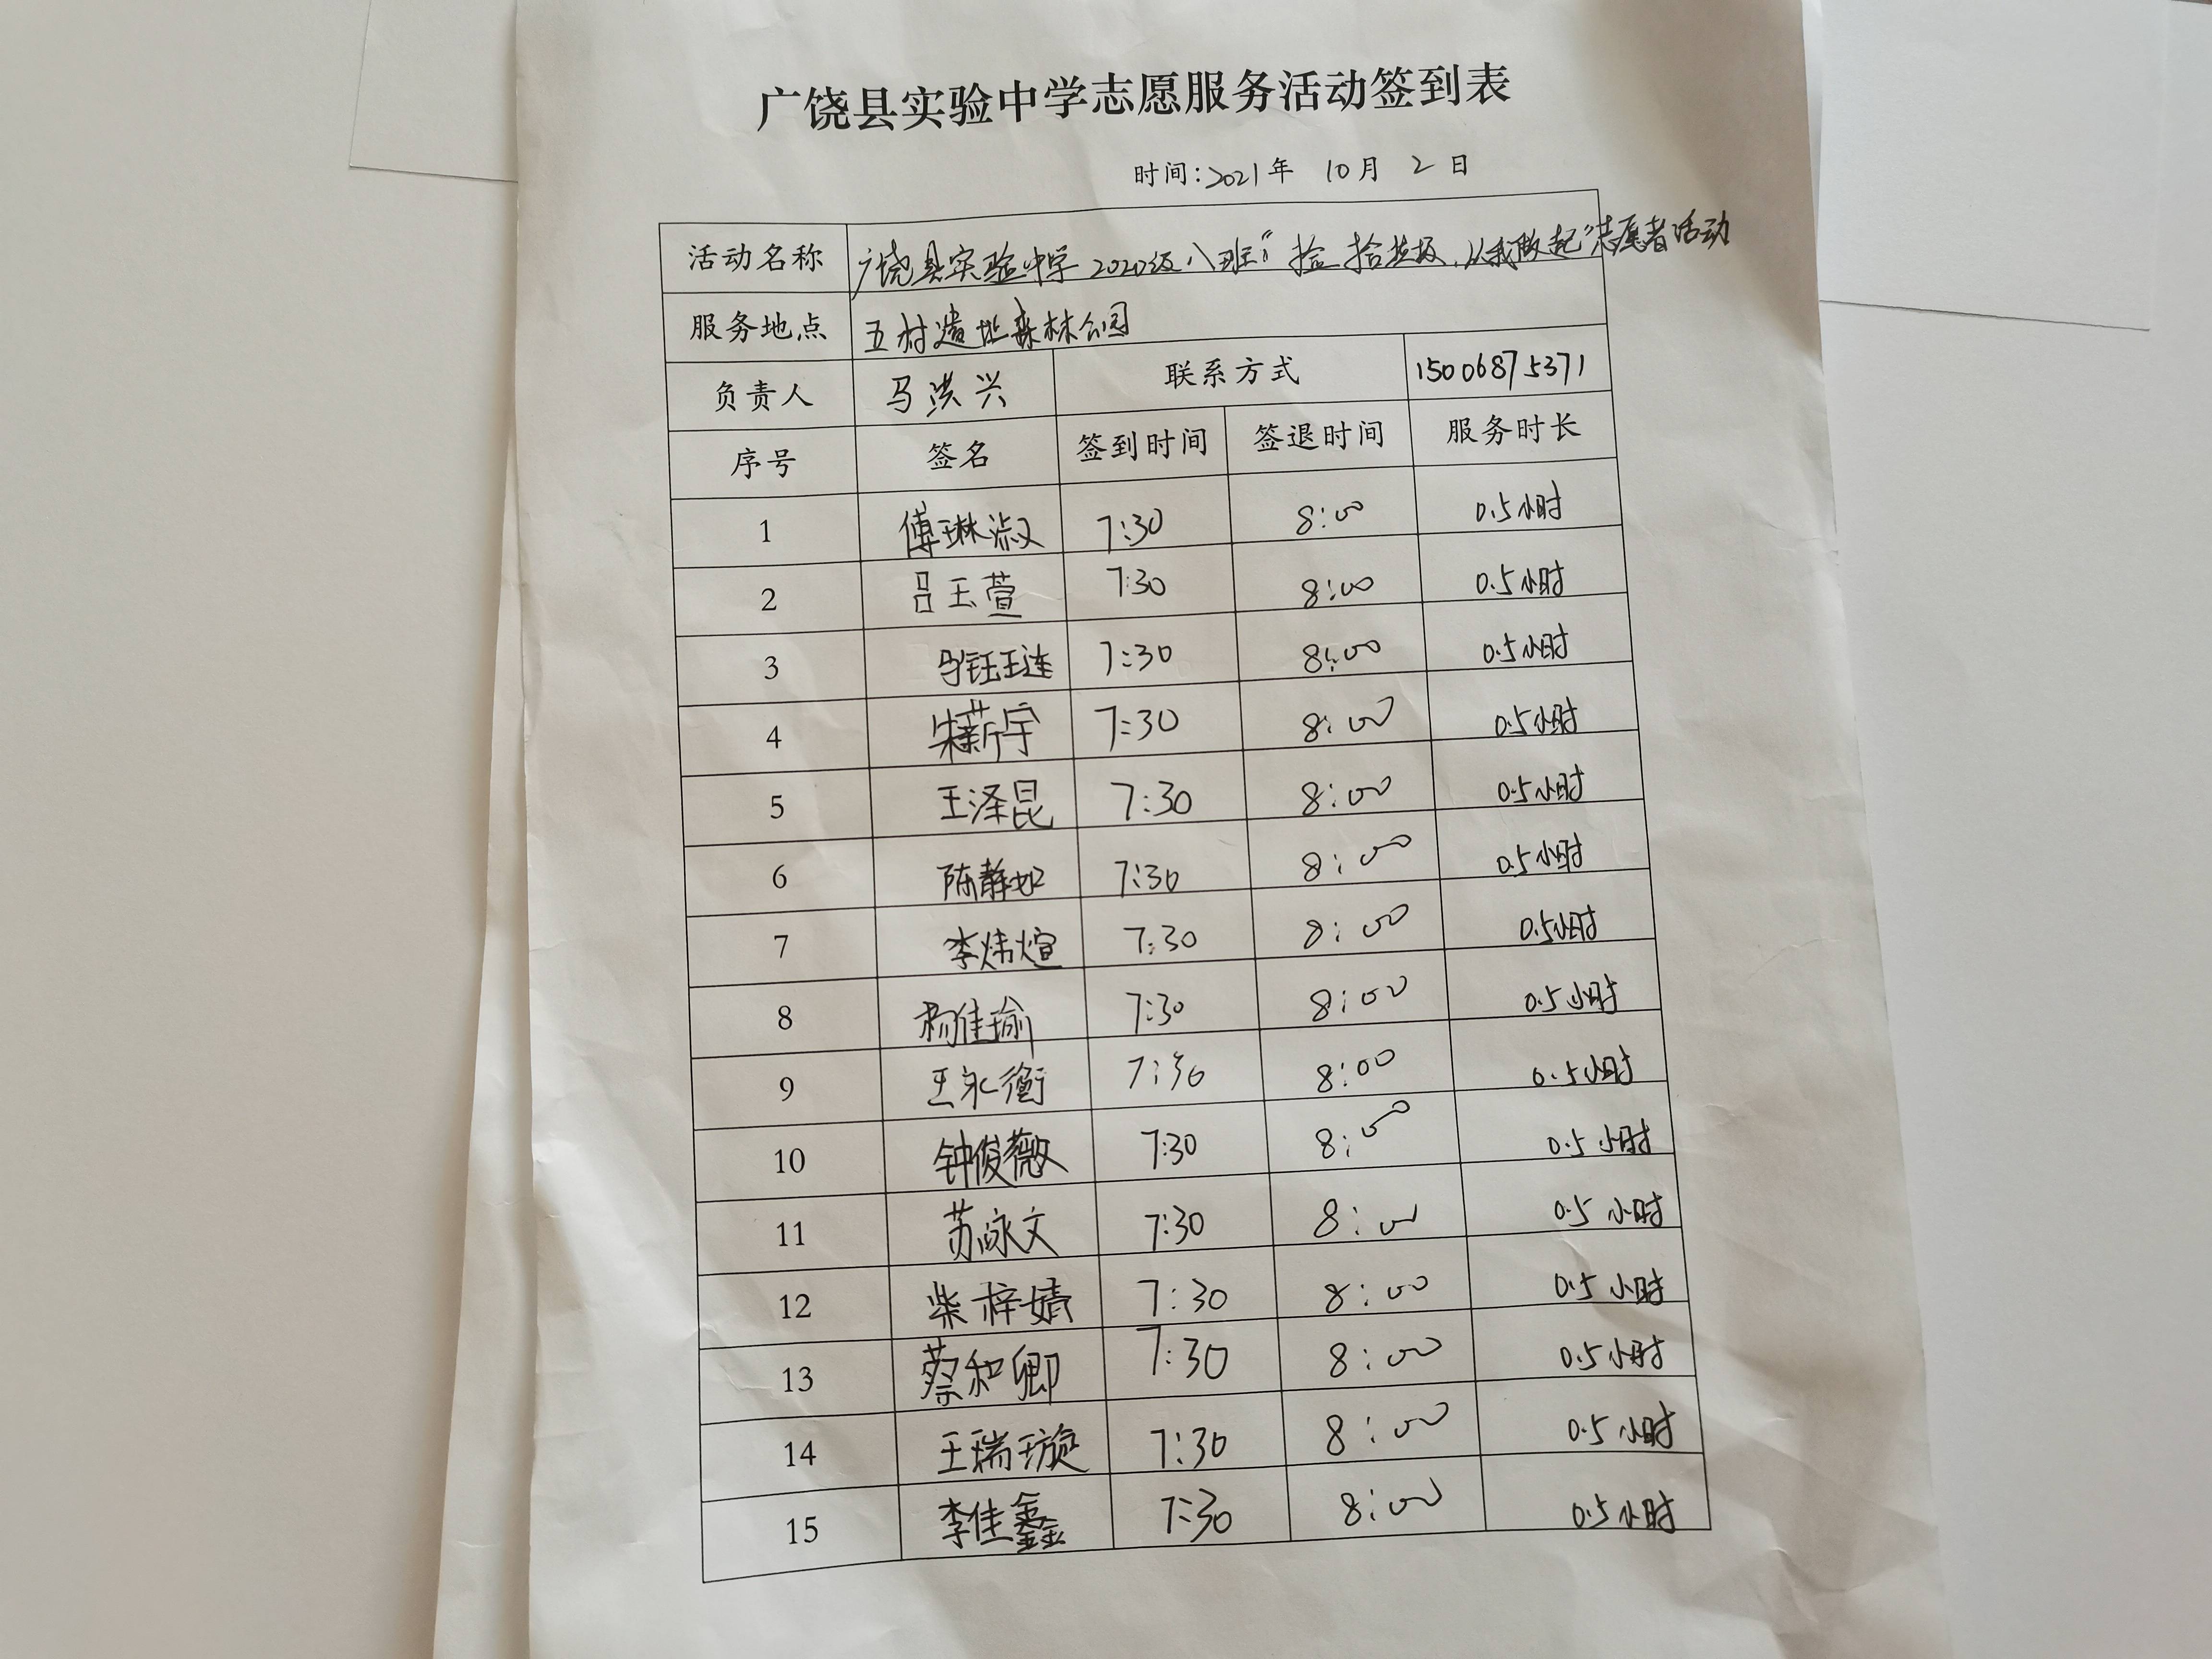 广饶县实验中学志愿服务活动签到表
时间:2021年 10月 2日
活动名称 广饶县实验中学2020级八班“捡拾垃圾，从我做起”志愿者活动
服务地点 五村遗址森林公园
负责人 马洪兴 联系方式 15006875371
序号 签名 签到时间 签退时间 服务时长
1 傅琳淑 7:30 8:00 0.5小时
2 吕玉萱 7:30 8:00 0.5小时
3 7:30 8:00 0.5小时
4 宋薪宇 7:30 8:00 0.5小时
5 王泽昆 7:30 8:00 0.5小时
6 陈静如 7:30 8:00 0.5小时
7 李炜煊 7:30 8:00 0.5小时
8 杨佳瑜 7:30 8:00 0.5小时
9 王永衡 7:30 8:00 0.5小时
10 钟俊薇 7:30 8:00 0.5小时
11 苏咏文 7:30 8:00 0.5小时
12 柴梓婧 7:30 8:00 0.5小时
13 蔡和卿 7:30 8:00 0.5小时
14 王瑞璇 7:30 8:00 0.5小时
15 李佳鑫 7:30 8:00 0.5小时